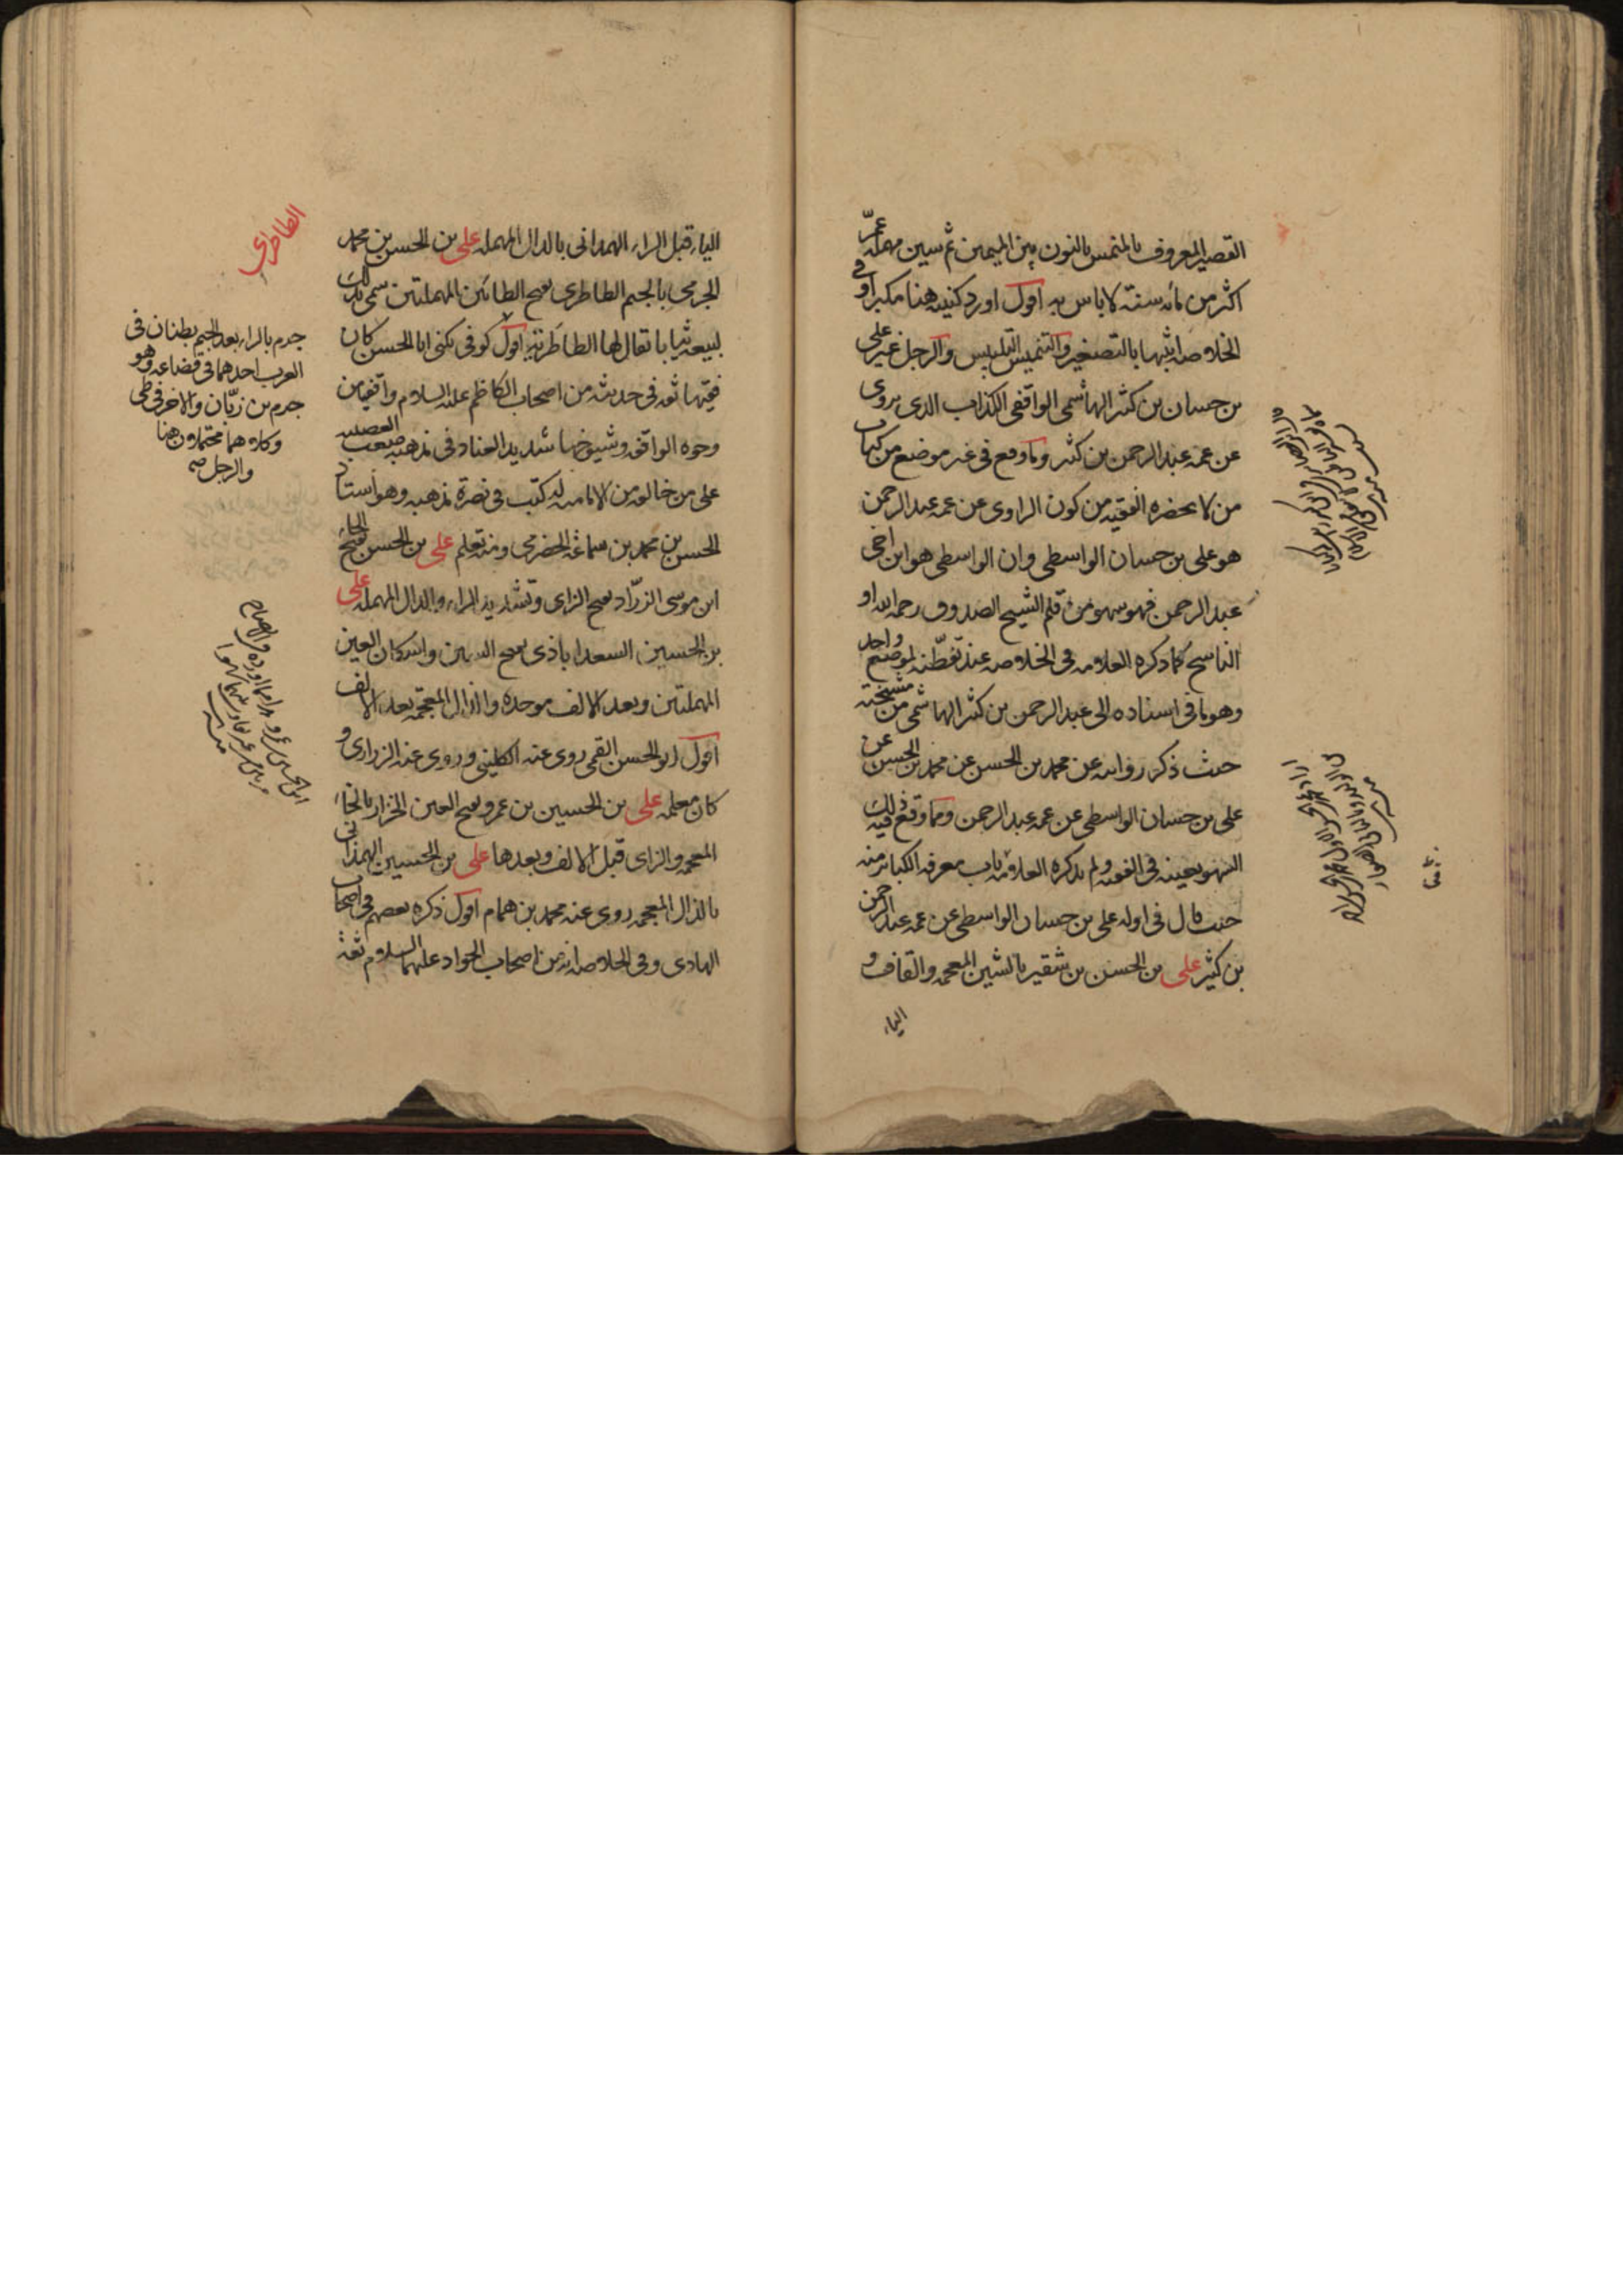 القصير المعروف بالمنمس بالنون بين الميمين ثم سين مهملة عمّر
اكثر من مائة سنة لا باس به اقول اورد كنيته هنا مكبرا و في
الخلاصة اثبتها بالتصغير والتنميس التلبيس والرجل غير علي
بن حسان بن كثير الهاشمي الواقفي الكذاب الذي يروي
عن عمه عبد الرحمن بن كثير وما وقع في غير موضع من كتاب
من لا يحضره الفقيه من كون الراوي عن عمه عبد الرحمن
هو علي بن حسان الواسطي وان الواسطي هو ابن اخي
عبد الرحمن فهو سهو من قلم الشيخ الصدوق رحمه الله او
الناسخ كما ذكره العلامه في الخلاصه عند تفطنه لموضع واحد
وهو ما في اسناده الى عبد الرحمن بن كثير الهاشمي من مشيخته
حيث ذكر روايته عن محمد بن الحسن عن محمد بن الحسن عن
علي بن حسان الواسطي عن عمه عبد الرحمن ومما وقع فيه ذلك
السهو بعينه في الفقيه ولم يذكره العلامة باب معرفه الكبائر منه
حيث قال في اوله علي بن حسان الواسطي عن عمه عبد الرحمن
بن كثير علي بن الحسن بن شقير بالشين المعجمه والقاف و
الياء
الياء قبل الراء الهمداني بالدال المهمله علي بن الحسن بن محمد
الجرمي بالجيم الطاطري بفتح الطائين المهملتين سمي بذلك
لبيعه ثيابا يقال لها الطاطريّة اقول كوفي يكنى ابا الحسن كان
فقيها ثقه في حديثه من اصحاب الكاظم عليه السلام واقفيا من
وجوه الواقفه وشيوخها شديد العناد في مذهبه صعب العصبيه
على من خالفه من الاماميه له كتب في نصرة مذهبه وهو استاد
الحسن بن محمد بن سماعه الحضرمي ومنه تعلم علي بن الحسن بفتح الحاء
ابن موسى الزرّاد بفتح الزاي وتشديد الراء والدال المهمله علي
بن الحسين السعدابادي بفتح السين واسكان العين
المهملتين وبعد الالف موحده والذال المعجمه بعد الالف
اقول ابو الحسن القمي روى عنه الكليني وروى عنه الزراري و
كان معلمه علي بن الحسين بن عمرو بفتح العين الخزاز بالخاء
المعجمه والزاي قبل الالف وبعدها علي بن الحسين الهمذاني
بالذال المعجمه روى عنه محمد بن همام اقول ذكره بعضهم في اصحاب
الهادي وفي الخلاصه انه من اصحاب الجواد عليهما السلام ثقة
الطاطري
جرم بالراء بعد الجيم بطنان في
العرب احدهما في قضاعه وهو
جرم بن زبّان والاخر في طي
وكلاهما محتملان هنا
والرجل